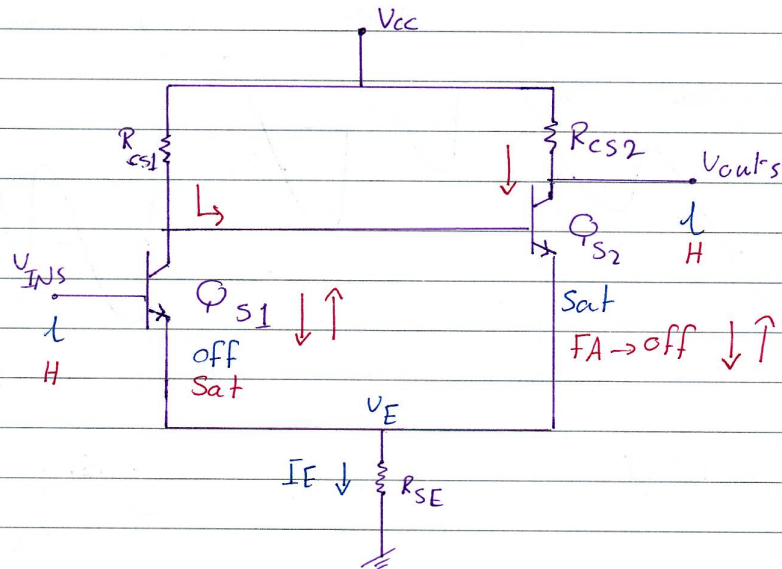 Vcc
R
CS1
RCS2
Vouts
l
H
QS2
VINS
l
H
QS1
off
Sat
Sat
FA → off
VE
IE
RSE